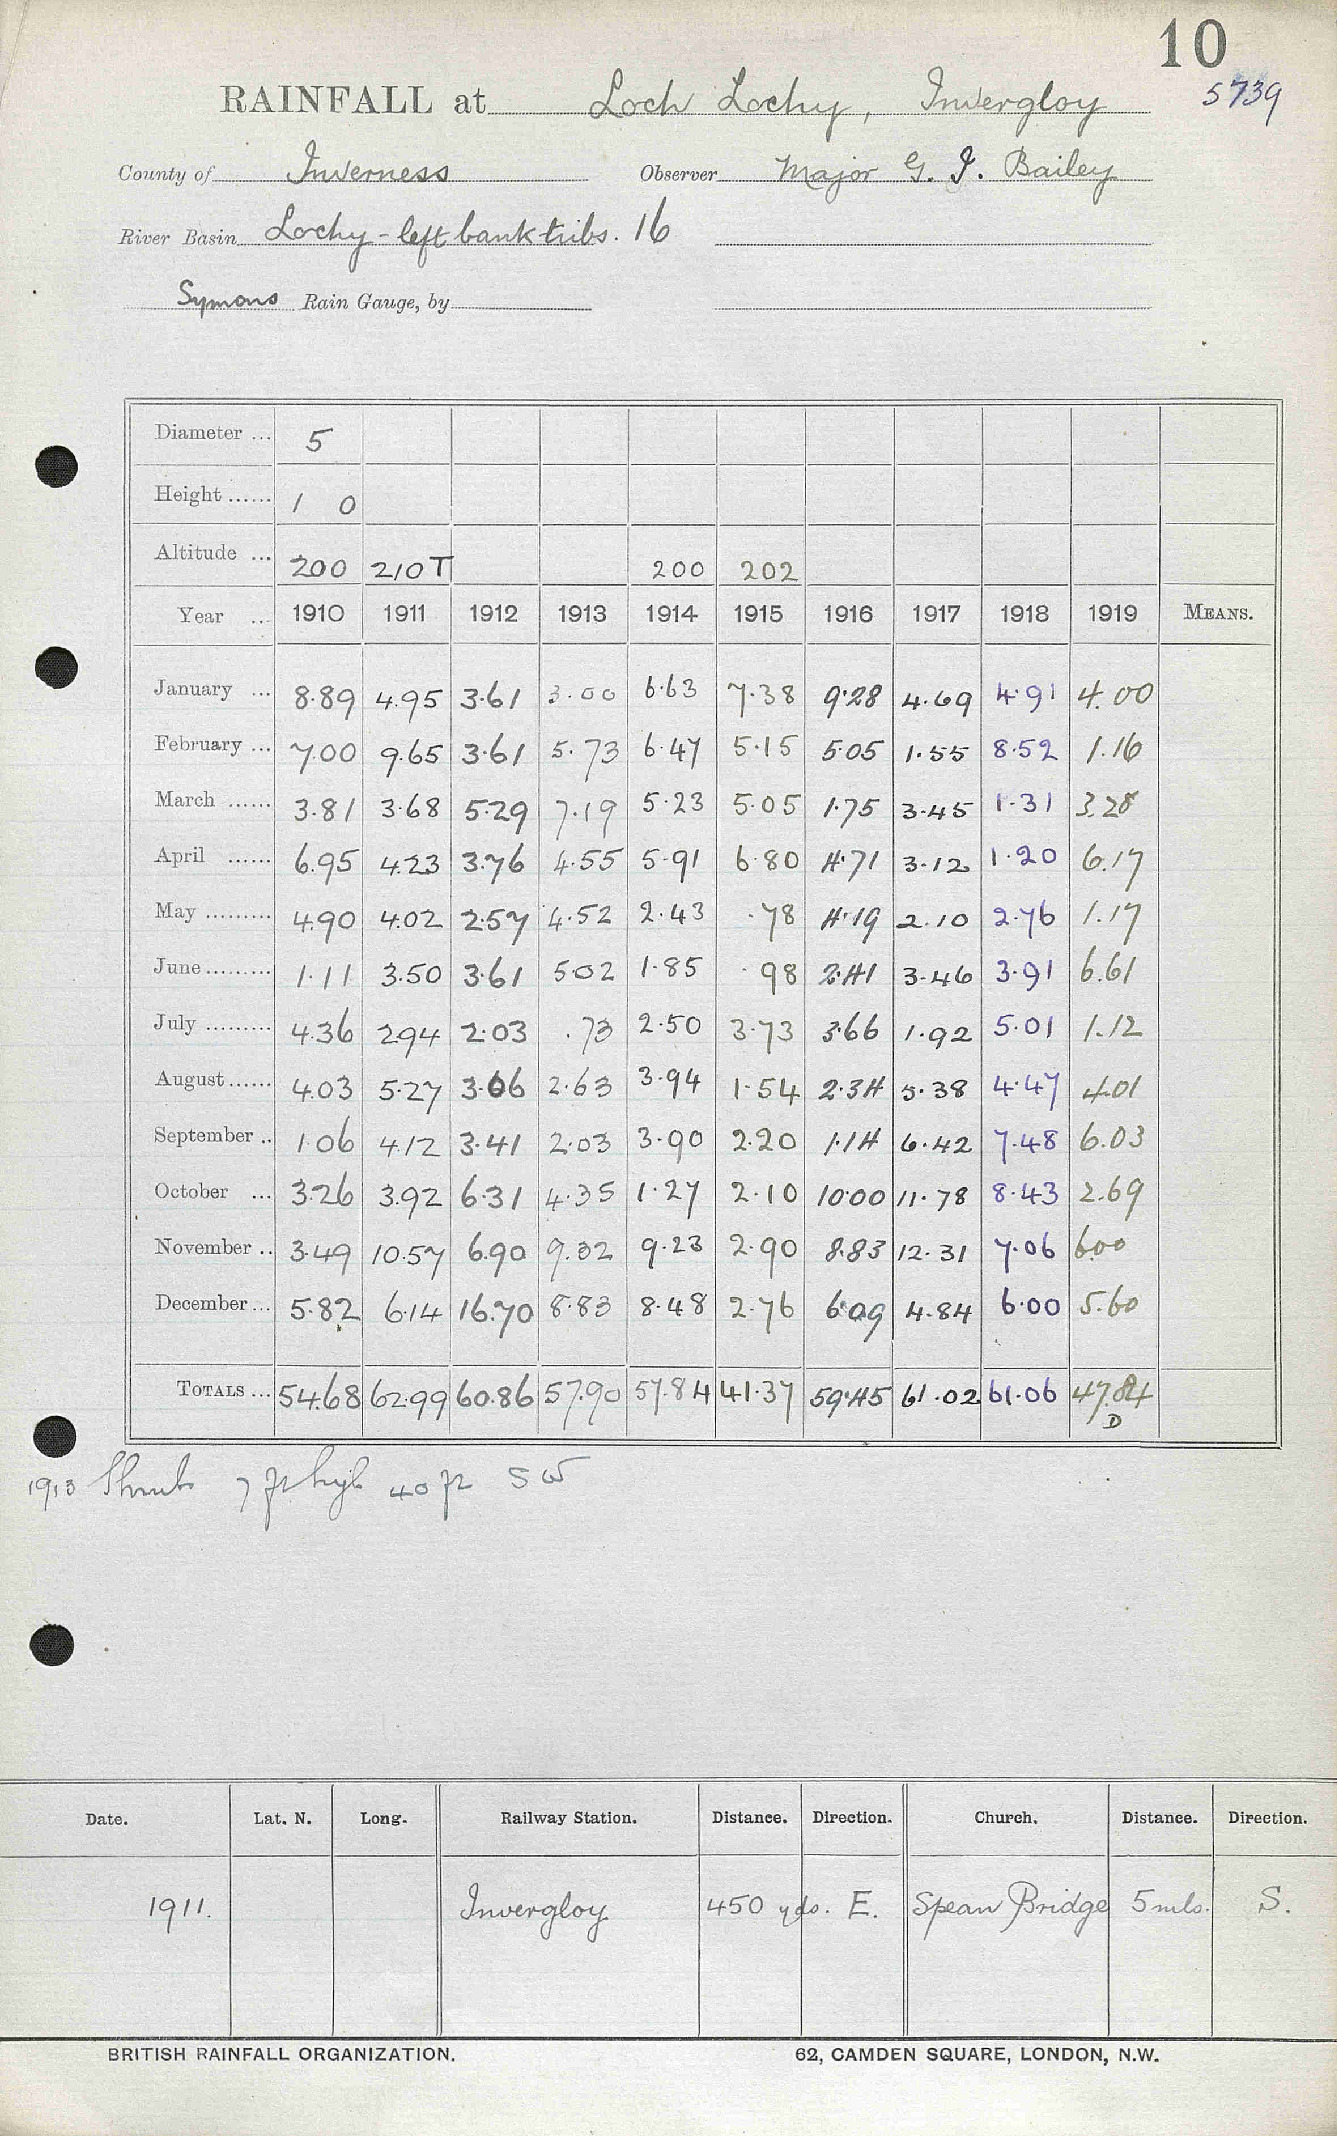 10
RAINFALL at Loch Lochy, Invergloy 5739
County of Inverness Observer Major G. J. Bailey
River Basin Lochy - left bank tribs. 16
Symons Rain Gauge, by
Diameter ... 5
Height ...... 1 0
Altitude ... 200 210T 200 202
Year ... 1910 1911 1912 1913 1914 1915 1916 1917 1918 1919 MEANS.
January ... 8.89 4.95 3.61 3.00 6.63 7.38 9.28 4.69 4.91 4.00
February ... 7.00 9.65 3.61 5.73 6.47 5.15 5.05 1.55 8.52 1.16
March ...... 3.81 3.68 5.29 7.19 5.23 5.05 1.75 3.45 1.31 3.28
April ...... 6.95 4.23 3.76 4.55 5.91 6.80 4.71 3.12 1.20 6.17
May ......... 4.90 4.02 2.57 4.52 2.43 .78 4.19 2.10 2.76 1.17
June ......... 1.11 3.50 3.61 5.02 1.85 .98 2.41 3.46 3.91 6.61
July ......... 4.36 2.94 2.03 .73 2.50 3.73 3.66 1.92 5.01 1.12
August ...... 4.03 5.27 3.06 2.63 3.94 1.54 2.34 5.38 4.47 4.01
September .. 1.06 4.12 3.41 2.03 3.90 2.20 1.14 6.42 7.48 6.03
October ... 3.26 3.92 6.31 4.35 1.27 2.10 10.00 11.78 8.43 2.69
November .. 3.49 10.57 6.90 9.32 9.23 2.90 8.83 12.31 7.06 6.00
December ... 5.82 6.14 16.70 8.83 8.48 2.76 6.09 4.84 6.00 5.60
TOTALS ... 54.68 62.99 60.86 57.90 57.84 41.37 59.45 61.02 61.06 47.84
D
1913 Shrub 7 ft high 40 ft SW
Date. Lat. N. Long. Railway Station. Distance. Direction. Church. Distance. Direction.
1911. Invergloy 450 yds. E. Spean Bridge 5 mls. S.
BRITISH RAINFALL ORGANIZATION. 62, CAMDEN SQUARE, LONDON, N.W.